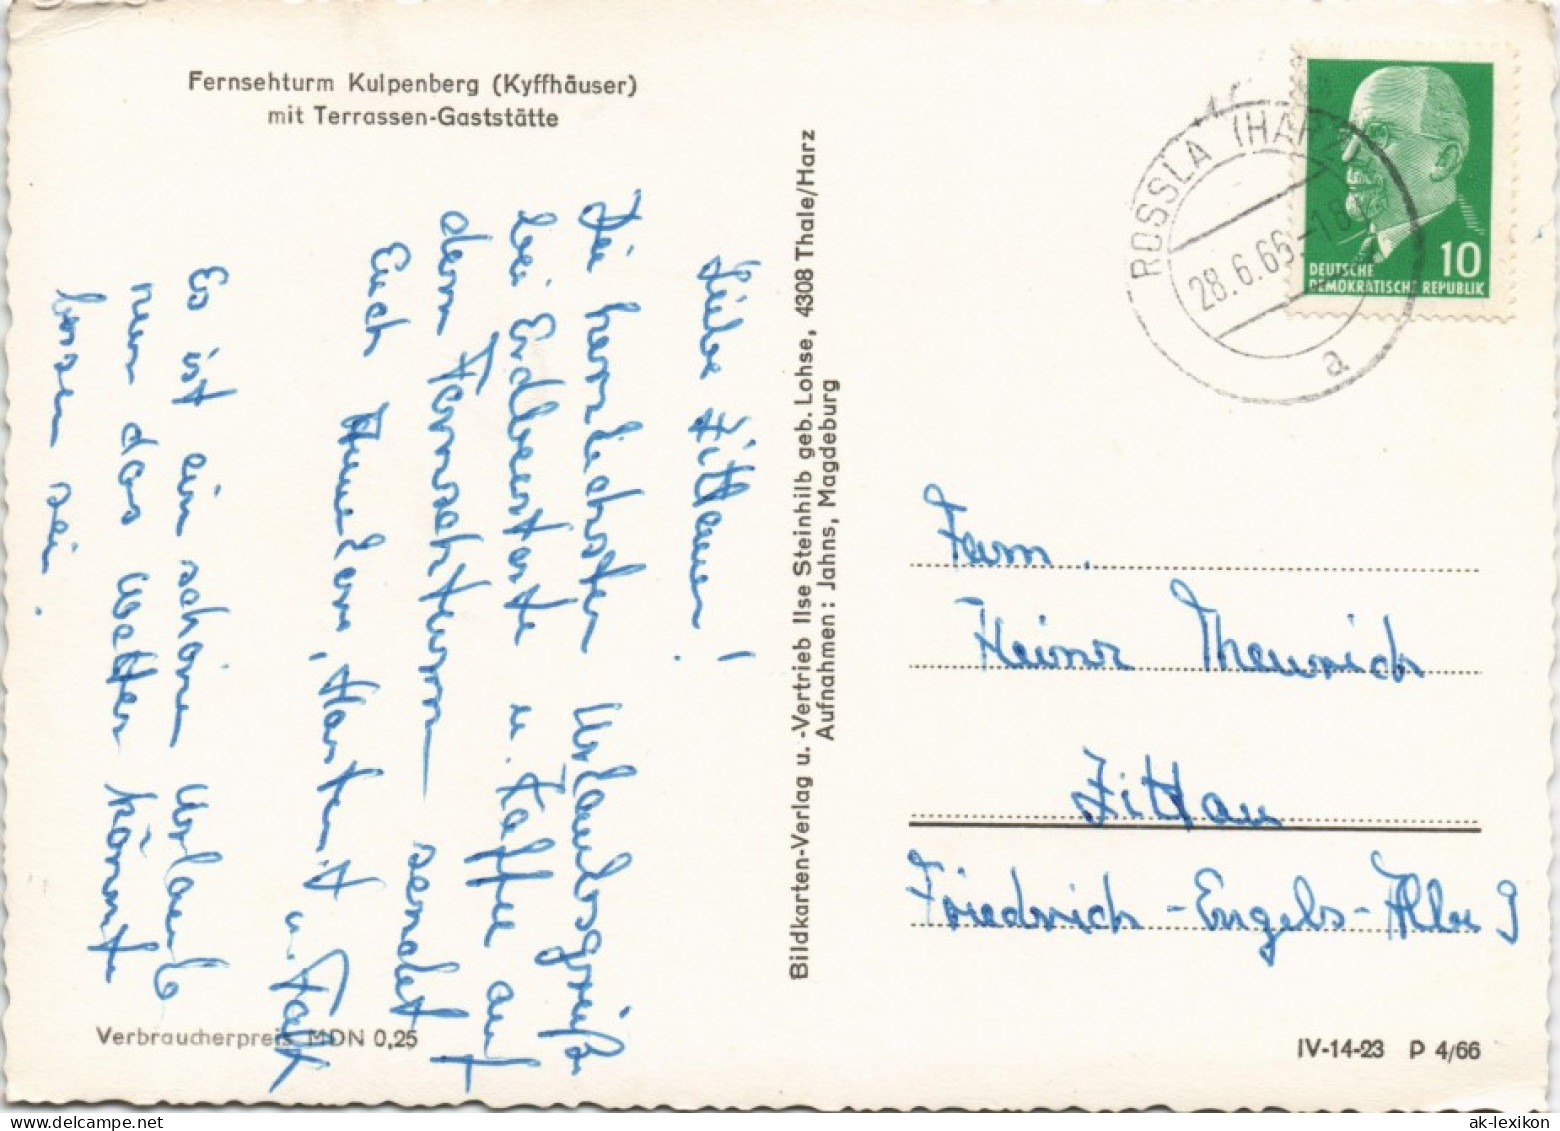 Fernsehturm Kulpenberg (Kyffhäuser)
mit Terrassen-Gaststätte
Liebe Zittauer!
Die herzlichsten Urlaubsgrüße
bei Erdbeertorte u. Kaffee auf
dem Fernsehturm sendet
Euch Hannelore, Hartmut u. Falk
Es ist ein schöner Urlaub
nur das Wetter könnt
besser sein.
Bildkarten-Verlag u. -Vertrieb Ilse Steinhilb geb. Lohse, 4308 Thale/Harz
Aufnahmen: Jahns, Magdeburg
ROSSLA (HARZ)
28.6.66.-18
a
10
DEUTSCHE
DEMOKRATISCHE REPUBLIK
Fam.
Heinz Theurich
Zittau
Friedrich-Engels-Allee 9
Verbraucherpreis MDN 0,25
IV-14-23 P 4/66
ak-lexikon